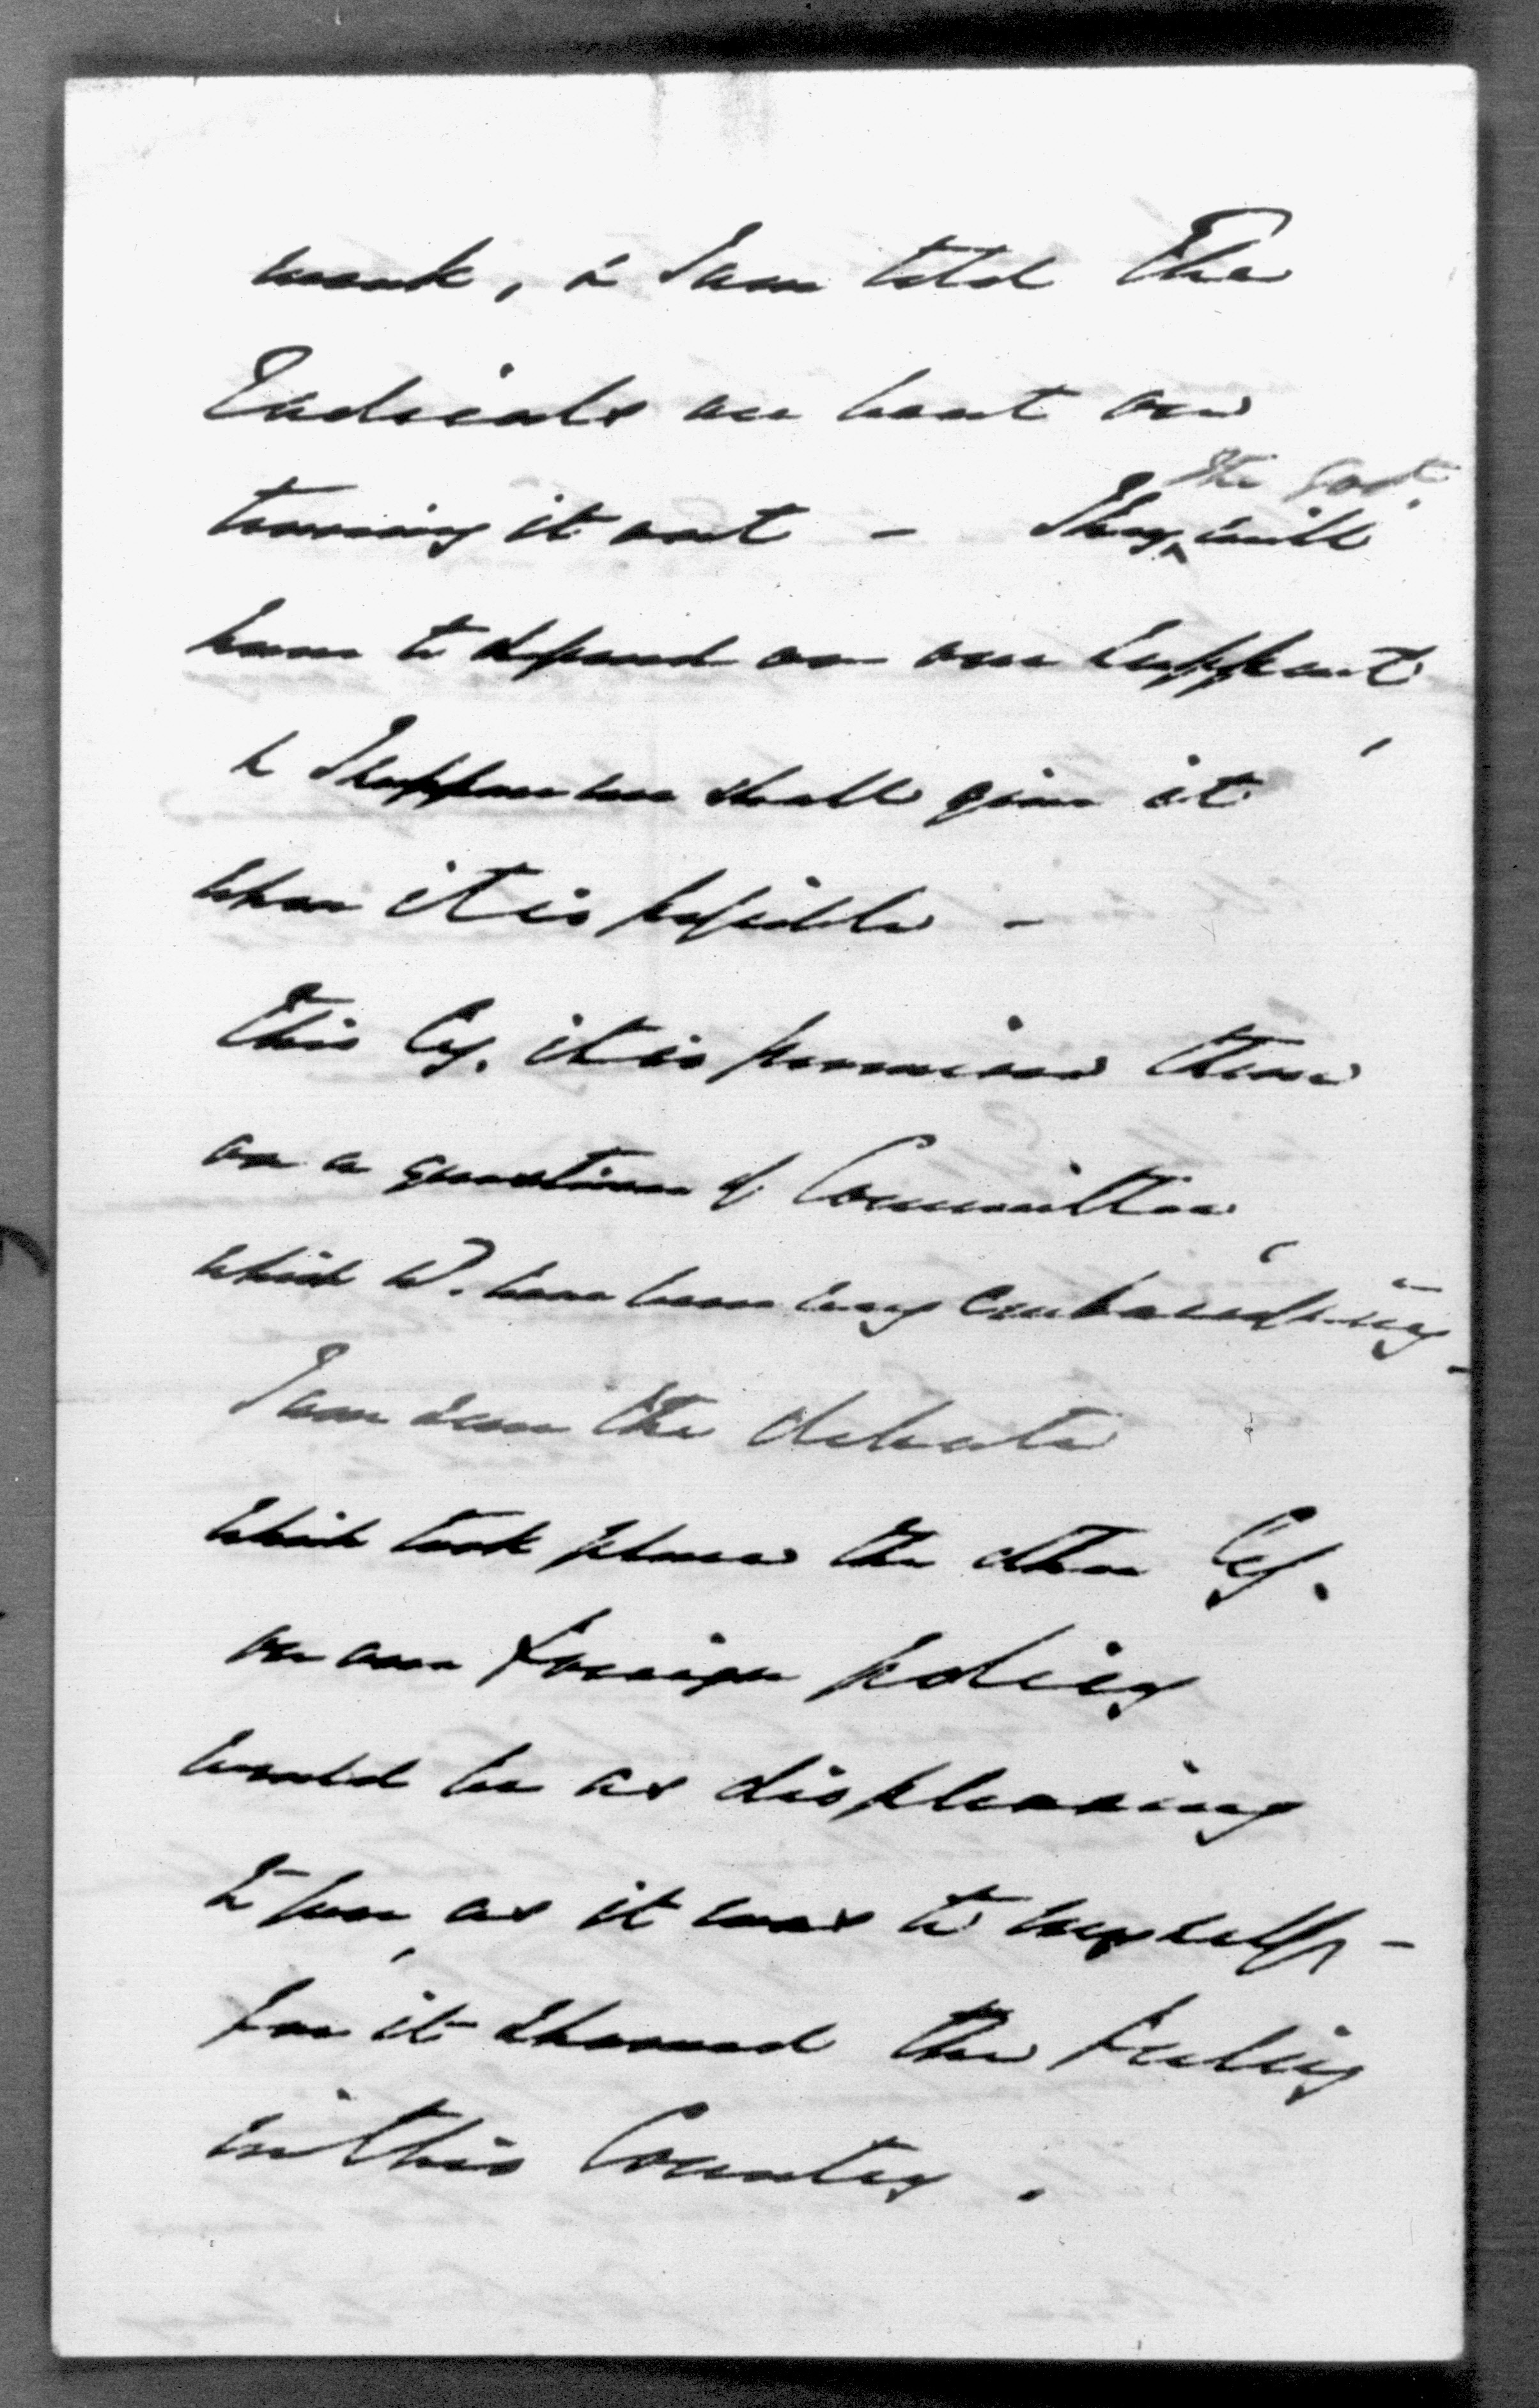 weak, & I am told the
Radicals are bent on
turning it out – They ^ the Govt. will
have to depend on our support,
& I suppose we shall give it
when it is possible –
This Ev. it is promised them
on a question of Committee,
which W. have been very embarrassing –
I am sure the debate
which took place the other Ev.
on our foreign policy
would be as displeasing
to you, as it was to myself –
for it showed the feeling
in this Country.